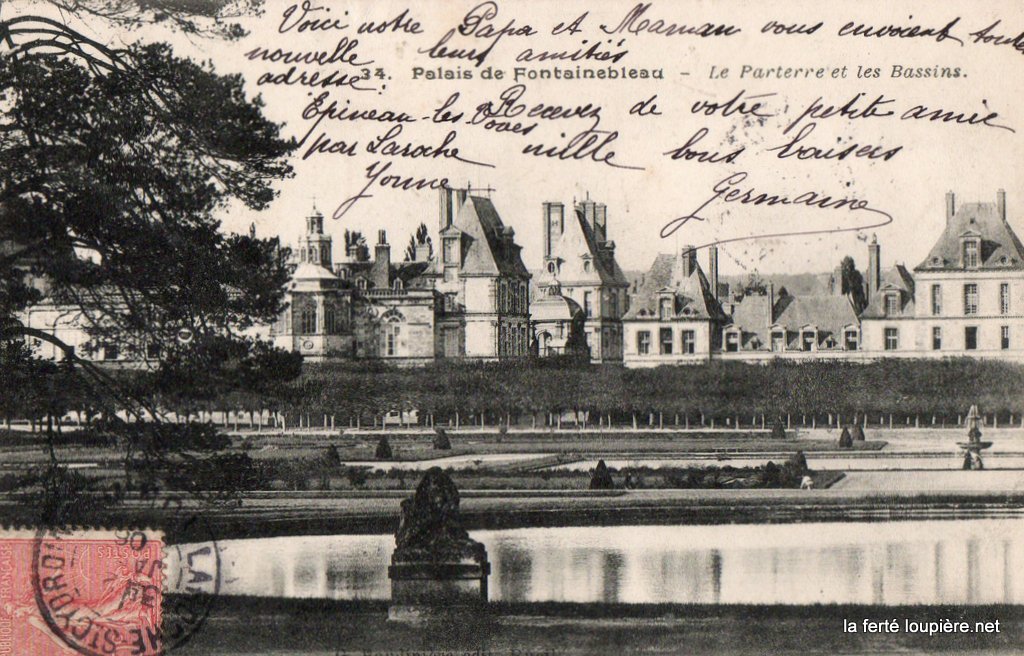 Voici notre Papa et Maman vous envoient toute
nouvelle leurs amitiés
adresse:
34. Palais de Fontainebleau - Le Parterre et les Bassins.
Épineau-les-Voves Recevez de votre petite amie
par Laroche mille bons baisers
Yonne
Germaine
LAROCHE ST CYDROINE
la ferté loupière.net